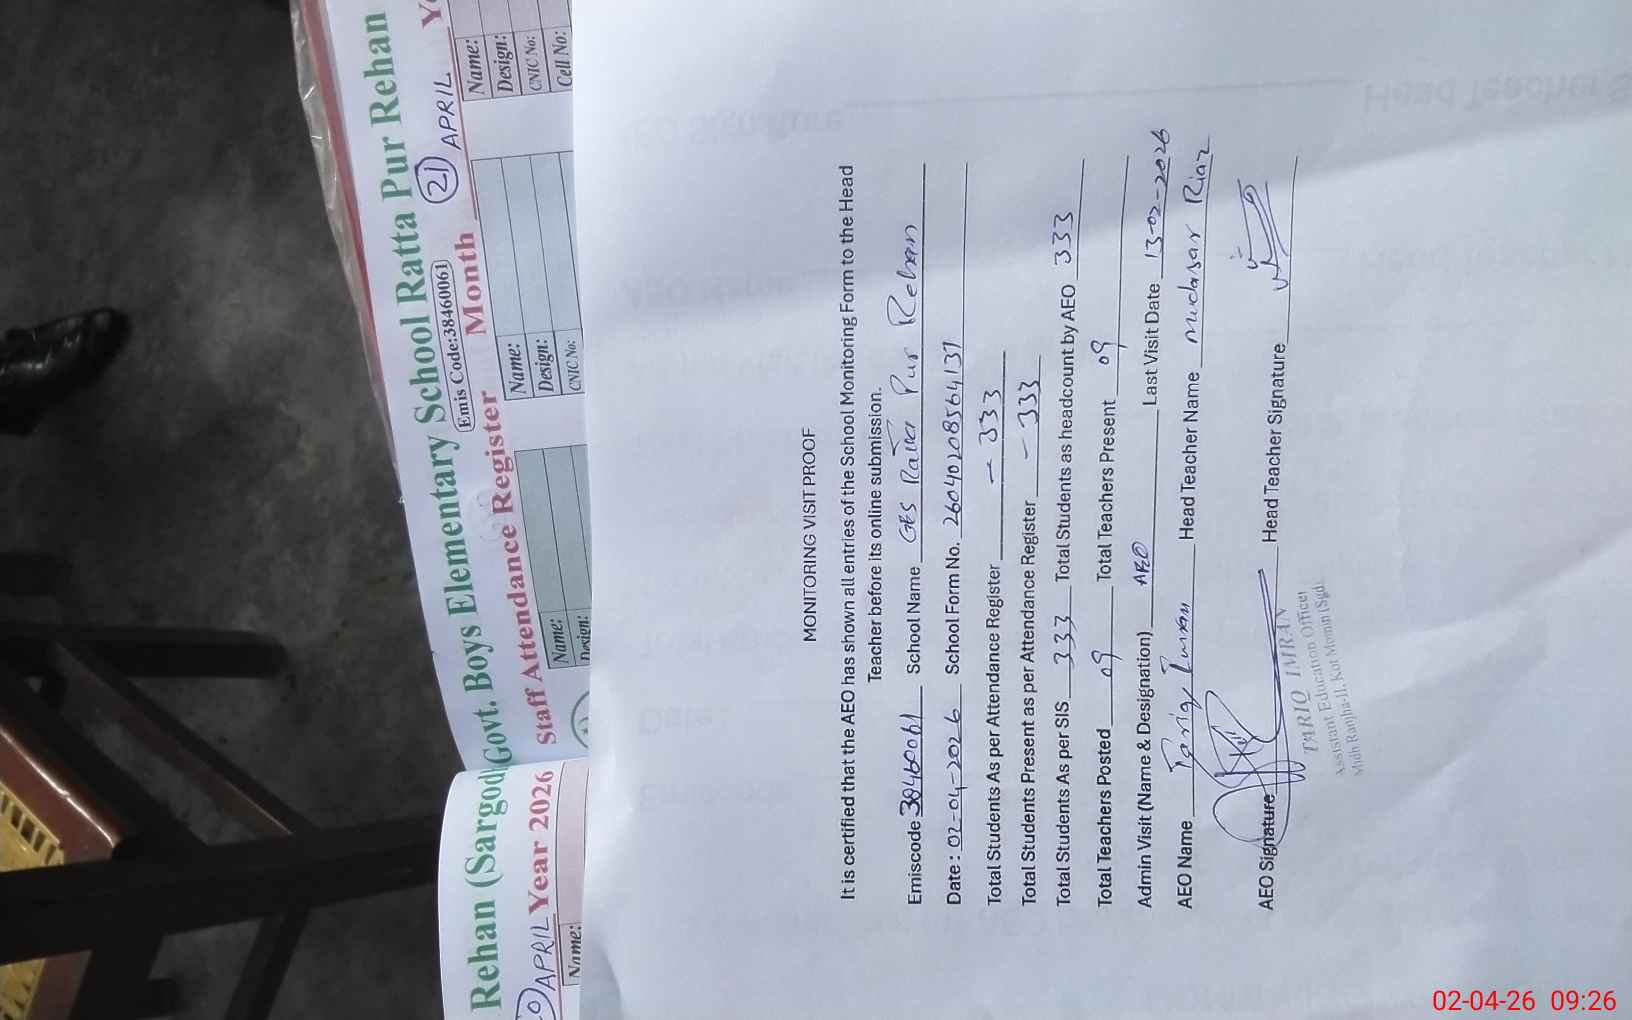 Rehan (Sargodha)
20 APRIL Year 2026
Name:
Govt. Boys Elementary School Ratta Pur Rehan
Emis Code:38460061
Staff Attendance Register Month 21 APRIL Y
Name:
Design:
Name:
Design:
CNIC No:
Name:
Design:
CNIC No:
Cell No:
MONITORING VISIT PROOF
It is certified that the AEO has shown all entries of the School Monitoring Form to the Head
Teacher before its online submission.
Emiscode 38460061 School Name GES Ratta Pur Rehan
Date : 02-04-2026 School Form No. 26040208564137
Total Students As per Attendance Register - 333
Total Students Present as per Attendance Register - 333
Total Students As per SIS 333 Total Students as headcount by AEO 333
Total Teachers Posted 09 Total Teachers Present 09
Admin Visit (Name & Designation) AEO Last Visit Date 13-02-2026
AEO Name Tariq Imran Head Teacher Name Mudasar Riaz
AEO Signature Head Teacher Signature
TARIQ IMRAN
Assistant Education Officer
Midh Ranjha-II, Kot Momin (Sgd)
02-04-26 09:26